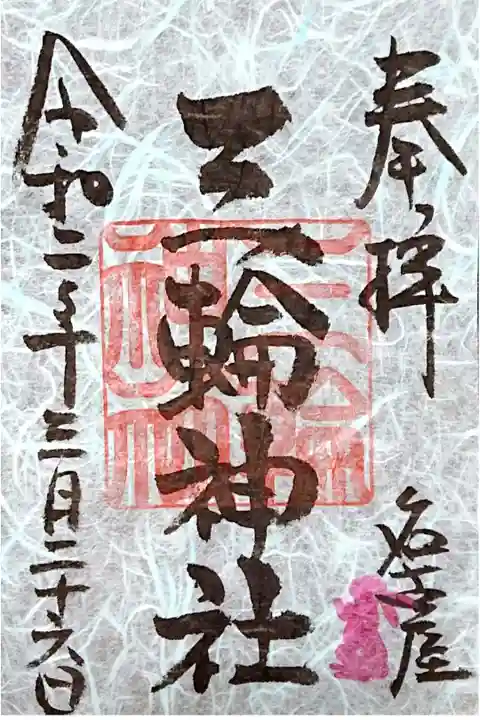 奉拝
名古屋
三輪神社
令和二年三月二十六日